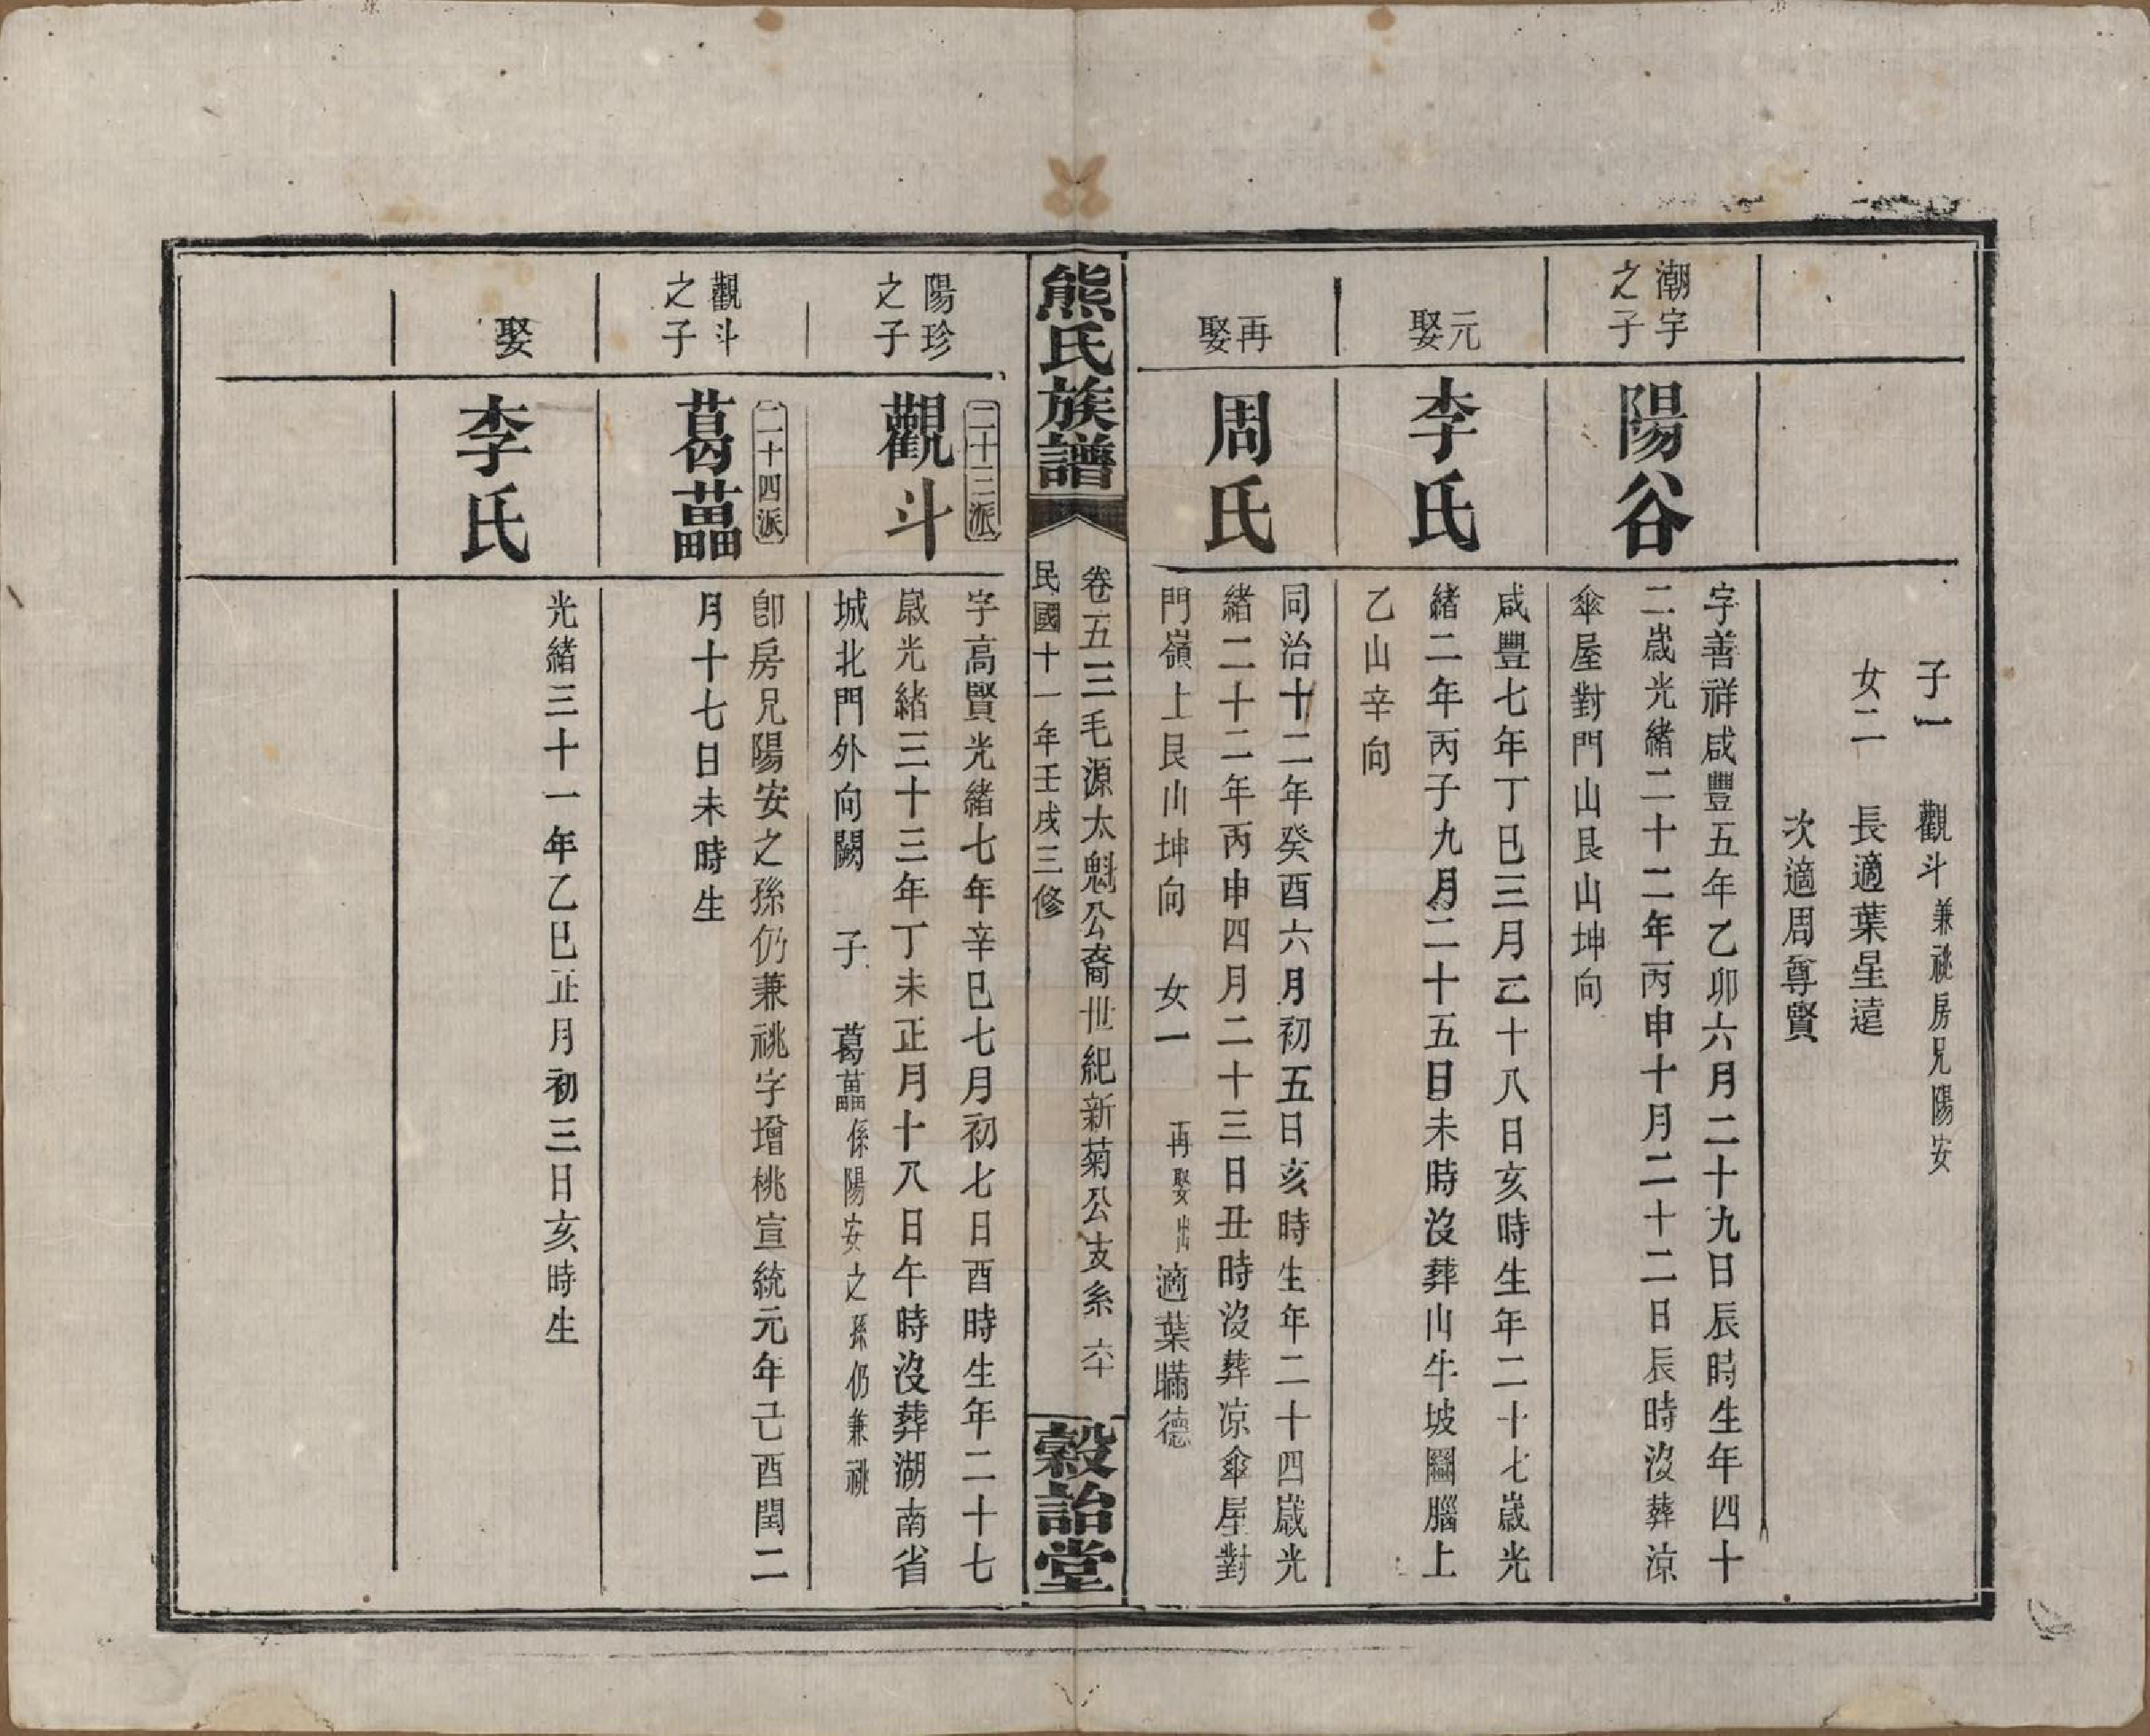 子一 觀斗兼祧房兄陽安
女二 長適葉星遠
次適周尊賢
潮宇
之子
陽谷
字善祥咸豐五年乙卯六月二十九日辰時生年四十
二歲光緒二十二年丙申十月二十二日辰時沒葬涼
傘屋對門山艮山坤向
元
娶
李氏
咸豐七年丁巳三月二十八日亥時生年二十七歲光
緒二年丙子九月二十五日未時沒葬山牛坡圝腦上
乙山辛向
再
娶
周氏
同治十二年癸酉六月初五日亥時生年二十四歲光
緒二十二年丙申四月二十三日丑時沒葬凉傘屋對
門嶺上艮山坤向 女一 再娶出適葉瞞德
熊氏族譜
卷五三毛源太魁公裔世紀新菊公支系 六十
民國十一年壬戌三修
穀詒堂
陽珍
之子
二十三派
觀斗
字高賢光緒七年辛巳七月初七日酉時生年二十七
歲光緒三十三年丁未正月十八日午時沒葬湖南省
城北門外向闕 子 葛藟係陽安之孫仍兼祧
觀斗
之子
二十四派
葛藟
卽房兄陽安之孫仍兼祧字增桃宣統元年己酉閏二
月十七日未時生
娶
李氏
光緒三十一年乙巳正月初三日亥時生